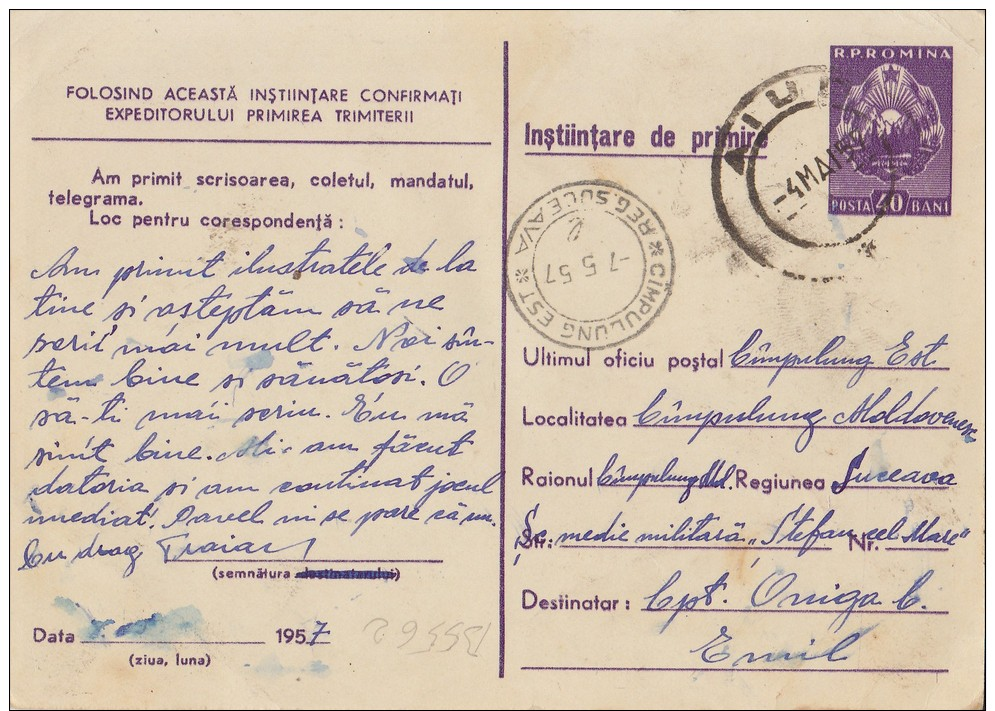 FOLOSIND ACEASTĂ INȘTIINȚARE CONFIRMAȚI
EXPEDITORULUI PRIMIREA TRIMITERII
Am primit scrisoarea, coletul, mandatul,
telegrama.
Loc pentru corespondență :
Am primit ilustratele de la
tine si asteptăm să ne
serii mai mult. Noi sîn-
tem bine si sănătosi. O
să-ti mai scriu. Eu mă
simt bine. Mi-am făcut
datoria si am continat jocul
imediat. Pavel ni se pare că
Cu drag Traian
(semnătura destinatarului)
Data 1957
(ziua, luna)
B5562
R.P.ROMINA
POSTA 40 BANI
AIUD
-4 MAI 57
Inștiințare de primire
CÎMPULUNG EST * REG. SUCEAVA *
-7 5 57
Ultimul oficiu poștal Cîmpulung Est.
Localitatea Cîmpulung Moldovenesc
Raionul Cîmpulung Mld. Regiunea Suceava
Str. Șc. medie militară „Stefan cel Mare" Nr.
Destinatar : Cpt. Oniga C.
Emil